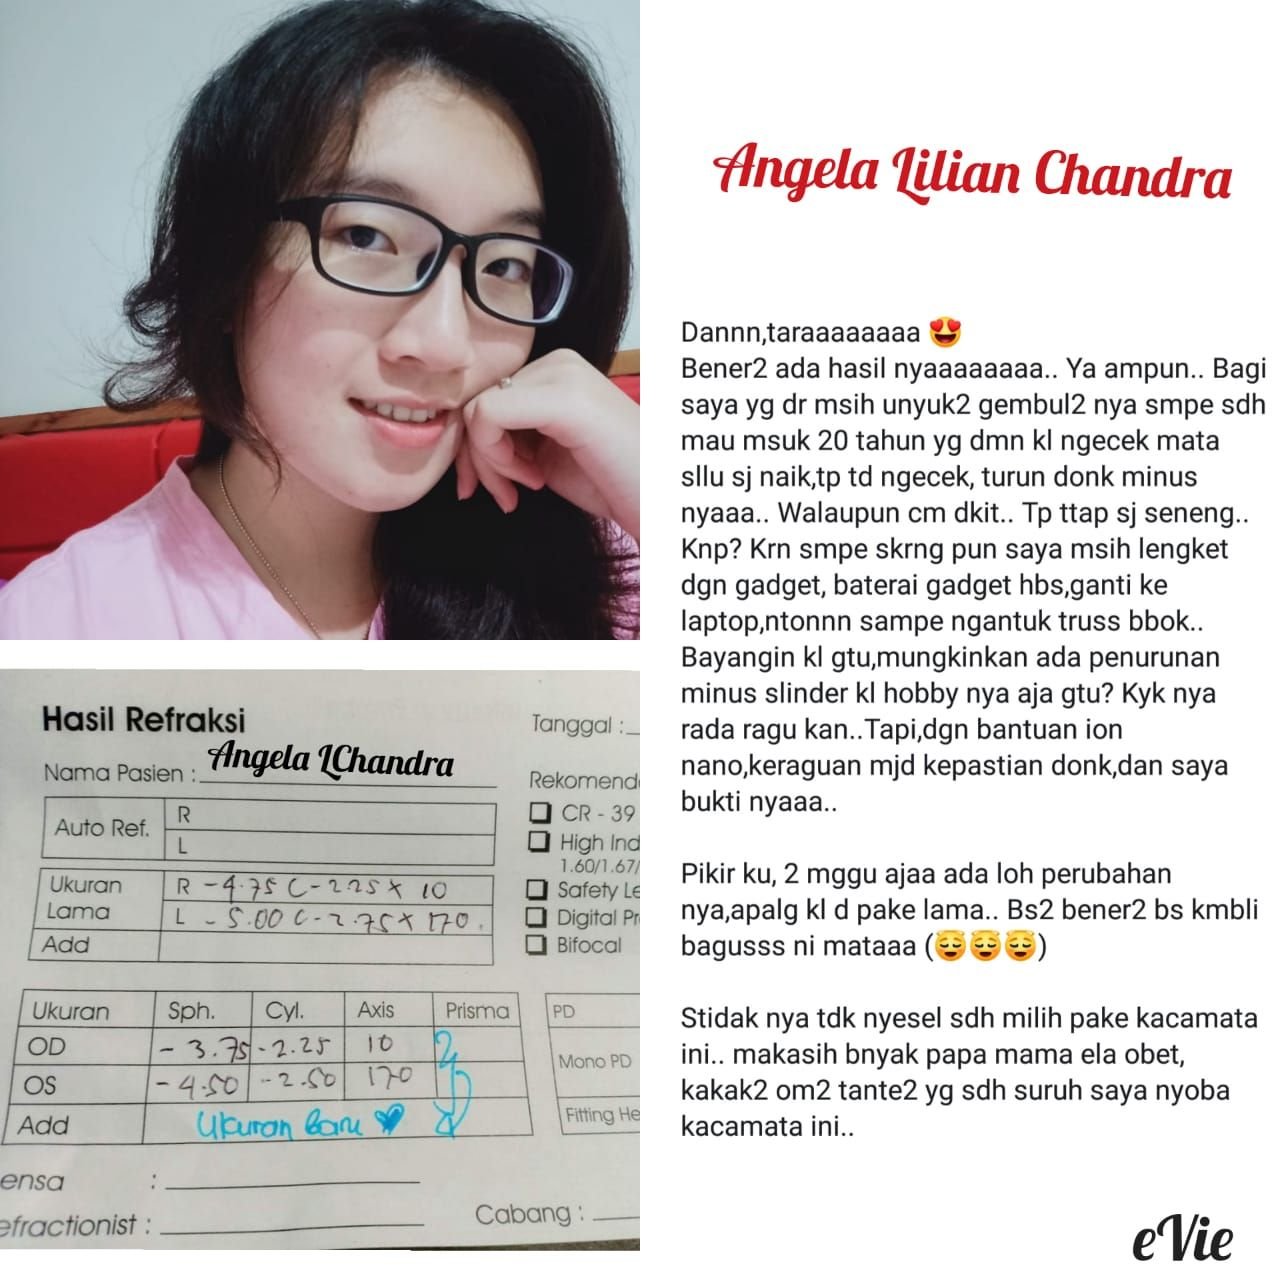 Angela Lilian Chandra
Dannn,taraaaaaaaaa 😍
Bener2 ada hasil nyaaaaaaaa.. Ya ampun.. Bagi
saya yg dr msih unyuk2 gembul2 nya smpe sdh
mau msuk 20 tahun yg dmn kl ngecek mata
sllu sj naik,tp td ngecek, turun donk minus
nyaaa.. Walaupun cm dkit.. Tp ttap sj seneng..
Knp? Krn smpe skrng pun saya msih lengket
dgn gadget, baterai gadget hbs,ganti ke
laptop,ntonnn sampe ngantuk truss bbok..
Bayangin kl gtu,mungkinkan ada penurunan
minus slinder kl hobby nya aja gtu? Kyk nya
rada ragu kan..Tapi,dgn bantuan ion
nano,keraguan mjd kepastian donk,dan saya
bukti nyaaa..
Pikir ku, 2 mggu ajaa ada loh perubahan
nya,apalg kl d pake lama.. Bs2 bener2 bs kmbli
bagusss ni mataaa (😇😇😇)
Stidak nya tdk nyesel sdh milih pake kacamata
ini.. makasih bnyak papa mama ela obet,
kakak2 om2 tante2 yg sdh suruh saya nyoba
kacamata ini..
eVie
Hasil Refraksi
Tanggal :
Nama Pasien : Angela LChandra
Rekomend
Auto Ref.
R
L
CR - 39
High Ind
1.60/1.67/
Safety Le
Digital Pr
Bifocal
Ukuran Lama
R -4.75 C-2.25 x 10
L -5.00 C-2.75 x 170.
Add
Ukuran Sph. Cyl. Axis Prisma
OD -3.75 -2.25 10
OS -4.50 -2.50 170
Add Ukuran baru
PD
Mono PD
Fitting He
ensa :
efractionist :
Cabang :